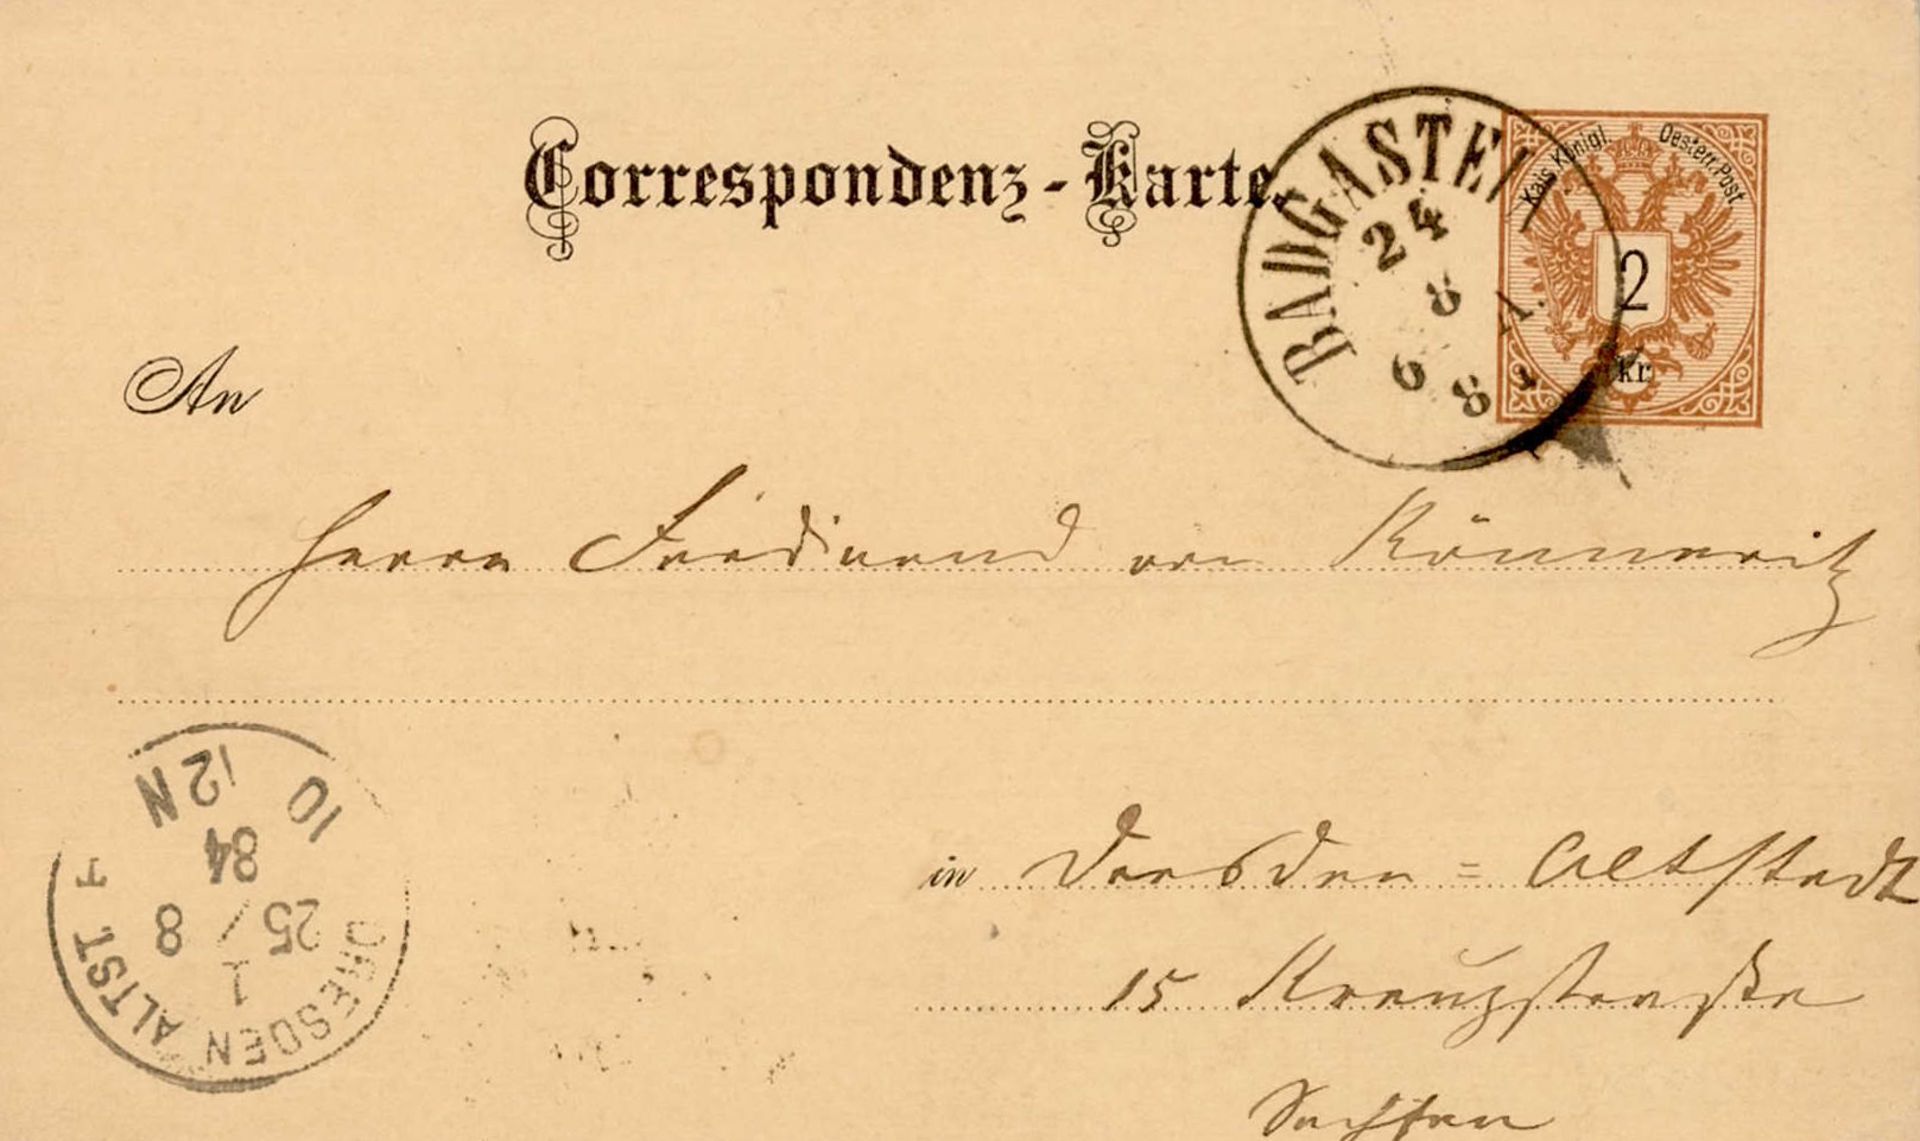 Correspondenz-Karte
BADGASTEIN
24
8
6 8 A.
Kais. Königl. Oesterr. Post
2
kr
An
Herrn Ferdinand von Könneritz
in Dresden = Altstadt
15 Kreuzstraße
Sachsen
DRESDEN ALTST
1
25/8
84
10 12N